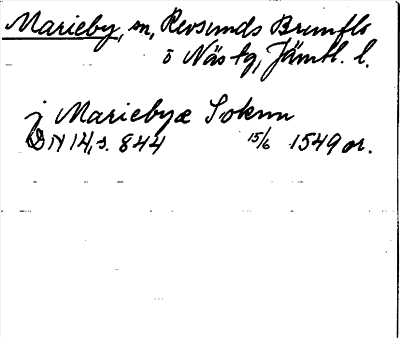 Marieby, sn, Revsunds Brunflo
o Näs tg, Jämtl. l.
j Mariebyæ Soknn
DN 14, s. 844 15/6 1549 or.